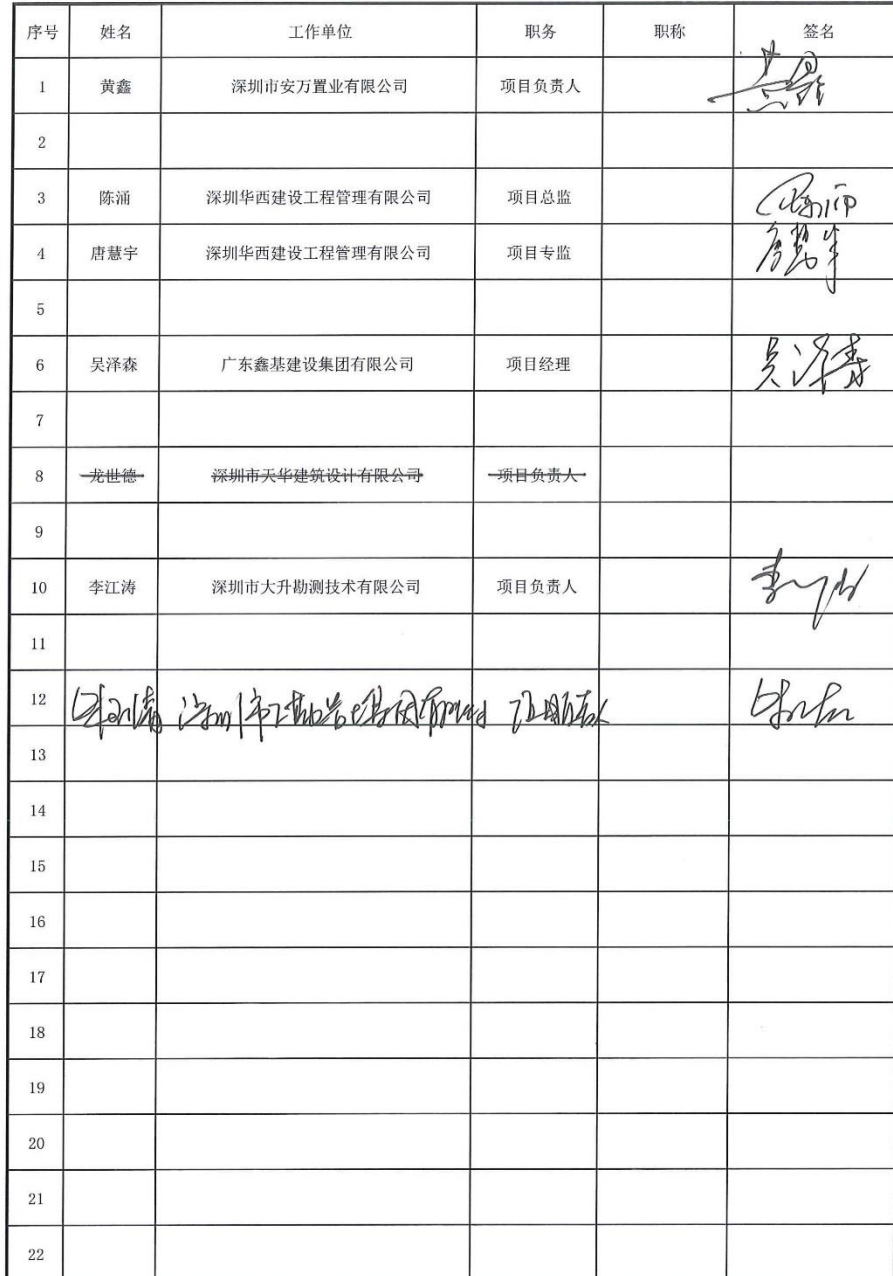 序号 姓名 工作单位 职务 职称 签名
1 黄鑫 深圳市安万置业有限公司 项目负责人
2
3 陈涌 深圳华西建设工程管理有限公司 项目总监
4 唐慧宇 深圳华西建设工程管理有限公司 项目专监 唐慧宇
5
6 吴泽森 广东鑫基建设集团有限公司 项目经理 吴泽森
7
8 龙世德 深圳市天华建筑设计有限公司 项目负责人
9
10 李江涛 深圳市大升勘测技术有限公司 项目负责人
11
12 深圳市
13
14
15
16
17
18
19
20
21
22